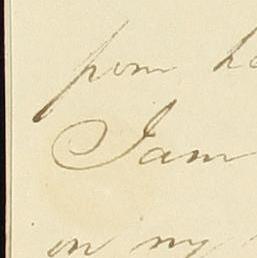 from h
I am
on my